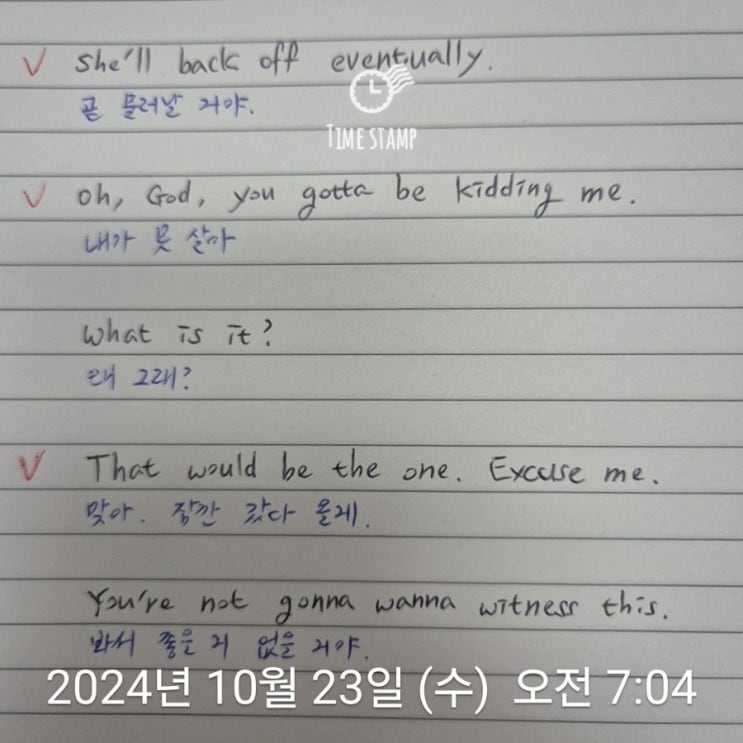 ✓ She'll back off eventually.
곧 물러날 거야.
TIME STAMP
✓ Oh, God, you gotta be kidding me.
내가 못 살아
What is it?
왜 그래?
✓ That would be the one. Excuse me.
맞아. 잠깐 갔다 올게.
You're not gonna wanna witness this.
봐서 좋을 거 없을 거야.
2024년 10월 23일 (수) 오전 7:04